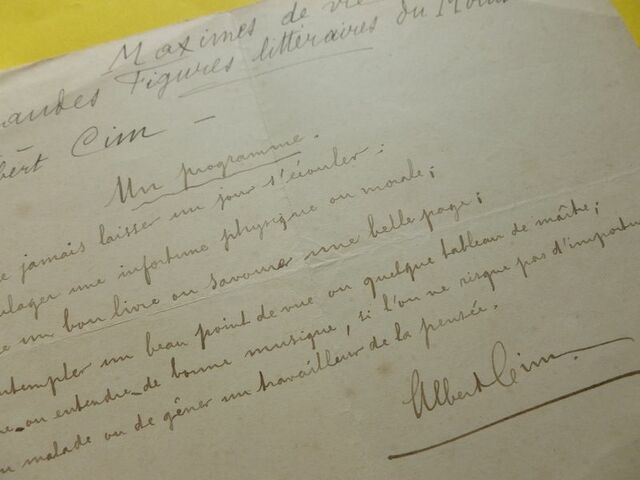 Maximes de vie
Figures littéraires du
Cim —
Un programme.
jamais laisser un jour s'écouler :
une infortune physique ou morale ;
un bon livre ou savourer une belle page ;
un beau point de vue ou quelque tableau de maître ;
ou entendre de bonne musique, si l'on ne risque pas d'importu
malade ou de gêner un travailleur de la pensée.
Albert Cim.